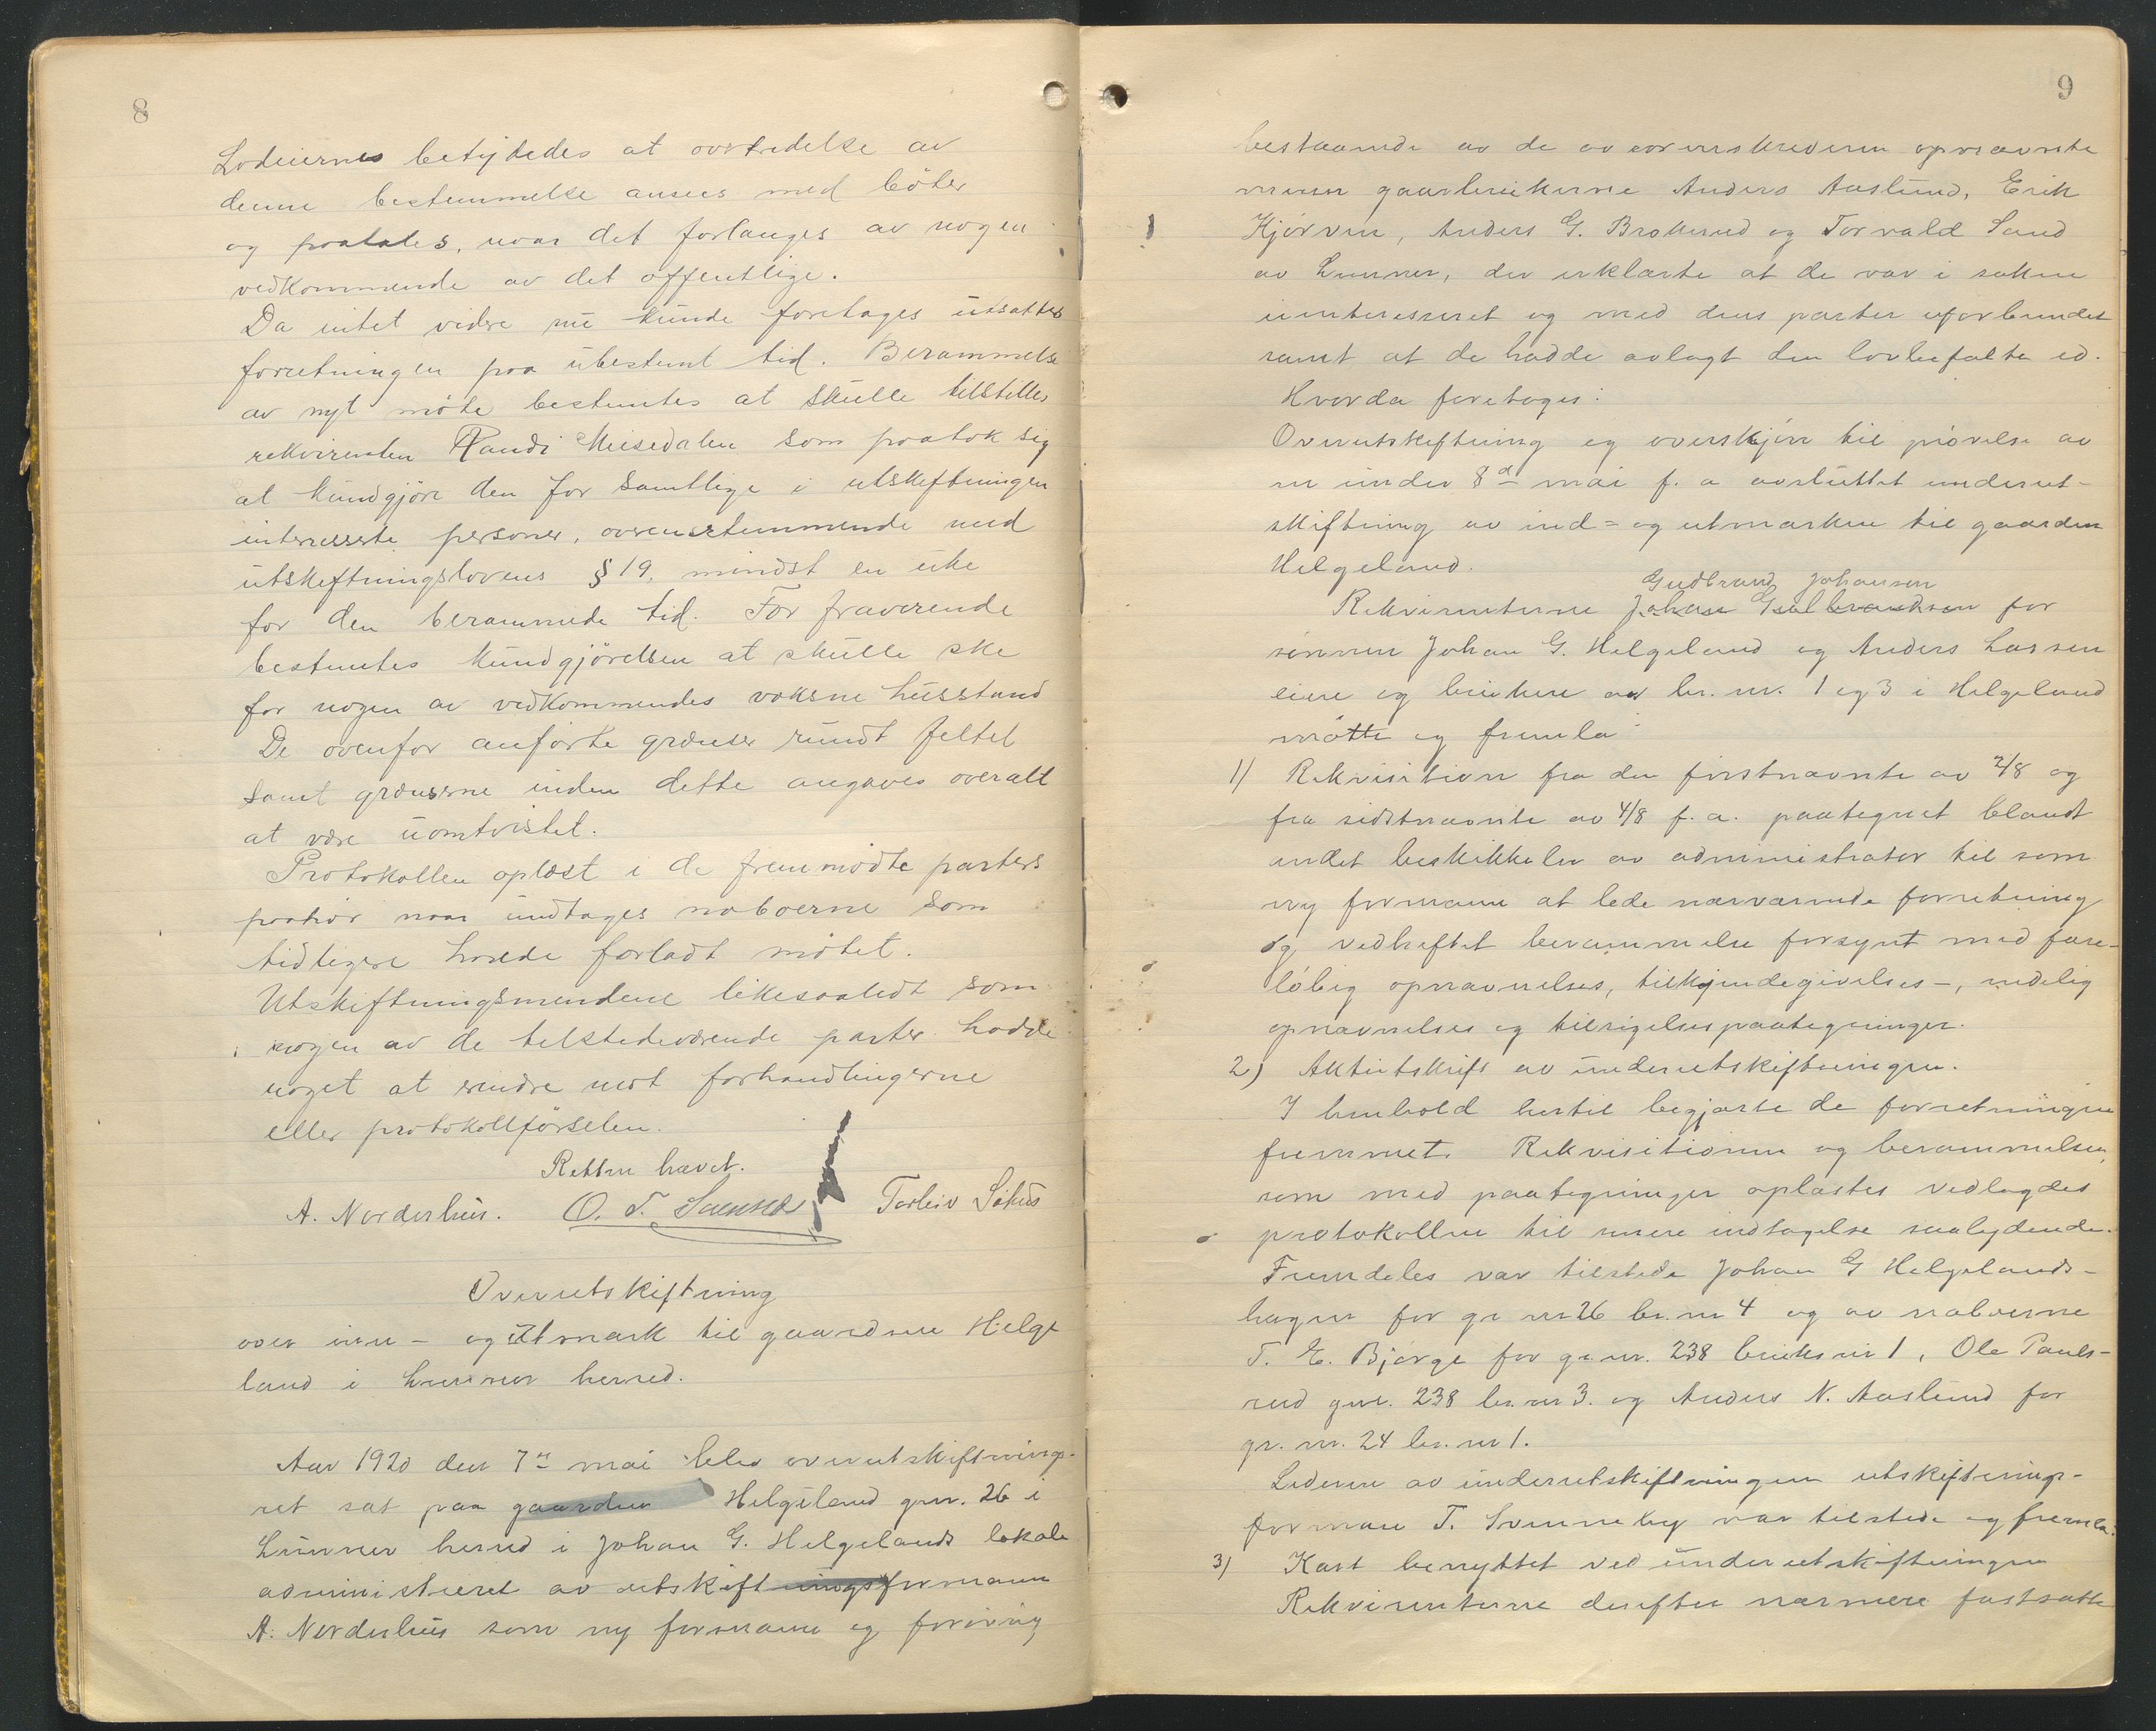 8
Lodeiernes betydedes at overtrædelse av
denne bestemmelse ansees med böter
og paatales, naar det forlanges av nogen
vedkommende av det offentlige.
Da intet videre nu kunde foretages utsattes
forretningen paa ubestemt tid. Berammelse
av nyt möte bestemtes at skulle tilstilles
rekvirenten Randi som paatok sig
at kundgjöre den for samtlige i utskiftningen
interesserte personer, overensstemmende med
utskiftningslovens § 19, mindst en uke
for den berammede tid. For fraværende
bestemtes kundgjörelsen at skulle ske
for nogen av vedkommendes voksne husstand
De ovenfor anförte grænser rundt feltet
samt grænserne inden dette angaves overalt
at være uomtvistet.
Protokollen oplæst i de fremmödte parters
paahör naar undtages naboerne som
tidligere havde forladt mötet.
Utskiftningsmendene likesaalidt som
nogen av de tilstedeværende parter hadde
noget at erindre mot forhandlingerne
eller protokollförselen.
Retten hævet.
A. Norderhus. O. T. Torleiv
Overutskiftning
over inn- og utmark til gaardene Helge
land i Lunner herred.
Aar 1920 den 7de mai blev overutskiftnings-
ret sat paa gaarden Helgeland gnr. 26 i
Lunner herred i Johan G. Helgelands lokale
administreret av utskiftningsformann
A. Norderhus som ny formann og forövrig
9
bestaaende av de av lensmannen opnævnte
menn gaarbrukerne Anders Aaslund, Erik
Kjörven, Anders G. Brokerud og Torvald Sand
av Lunner, der erklærte at de var i saken
uinteresseret og med dens parter uforbundet
samt at de hadde avlagt den lovbefalte ed.
Hvorda foretoges:
Overutskiftning og overskjön til prövelse av
en under 8de mai f. a avsluttet underut-
skiftning av ind- og utmarken til gaarden
Helgeland.
Gudbrand Johansen
Rekvirenterne Johan Gulbrandsen for
sönnen Johan G. Helgeland og Anders Larsen
eiere og brukere av br. nr. 1 og 3 i Helgeland
mötte og fremla:
1) Rekvisition fra den förstnævnte av 2/8 og
fra sidstnævnte av 4/8 f. a. paategnet blandt
andet beskikkelse av administrator til som
ny formann at lede nærværende forretning
og vedheftet berammelse forsynt med fore-
löbig opnævnelses, tilkjendegivelses-, endelig
opnævnelses og tilsigelsespaategninger.
2) Aktutskrift av underutskiftningen.
I henhold hertil begjærte de forretningen
fremmet. Rekvisitionen og berammelsen,
som med paategninger oplæstes vedlagdes
protokollen til senere indtagelse saalydende.
Fremdeles var tilstede Johan G Helgelands-
hagen for gr nr 26 br. nr 4 og av naboerne
T. E. Bjørge for gr. nr. 238 bruksnr 1, Ole Pauls-
rud gnr. 238 br. nr 3. og Anders N. Aaslund for
gr. nr. 24 br. nr 1.
Lederen av underutskiftningen utskiftnings-
formann T. Svenneby var tilstede og fremla:
3) Kart benyttet ved underutskiftningen
Rekvirenterne derefter nærmere fastsatte